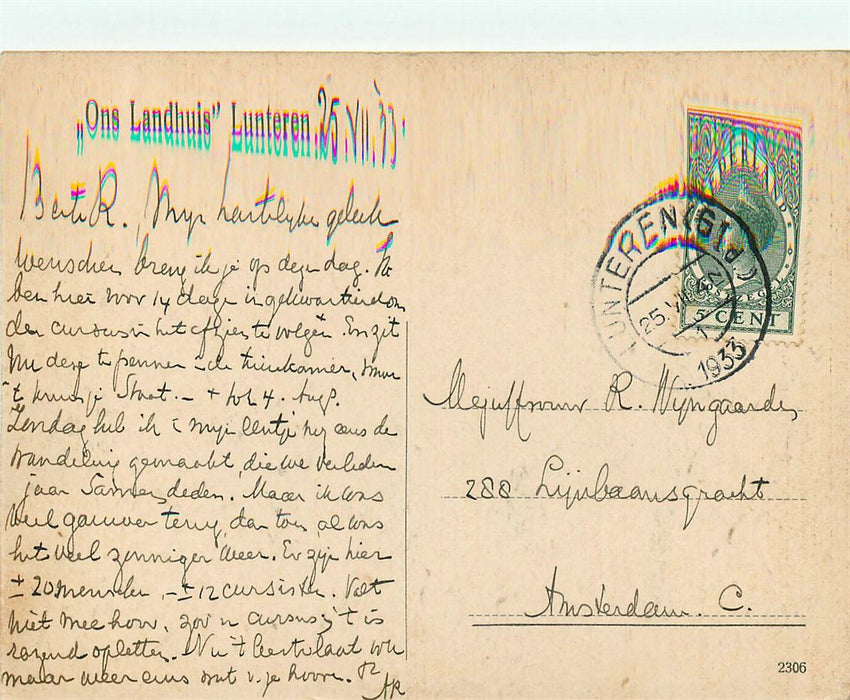 „Ons Landhuis” Lunteren. 25.VII.33.
Beste R. Mijn hartelijke geluk
wenschen breng ik je op dezen dag. Ik
ben hier voor 14 dagen ingekwartierd om
den cursus in het te volgen. En zit
nu deze te pennen in de tuinkamer, waar
't kruisje staat. – + tot 4. Aug.
Zondag heb ik in mijn eentje nog eens de
wandeling gemaakt, die we verleden
jaar Samen deden. Maar ik was
veel gauwer terug, dan toen, al was
het veel zonniger weer. Er zijn hier
± 20 menschen, – ± 12 cursisten. Valt
niet mee hoor, zoo'n cursus, 't is
razend opletten. Nu 't beste laat
maar weer eens wat v. je hooren.
AR
LUNTEREN (GLD.)
25.VII
1933
5 CENT
Mejuffrouw R. Wijngaarden
288 Lijnbaansgracht
Amsterdam. C.
2306